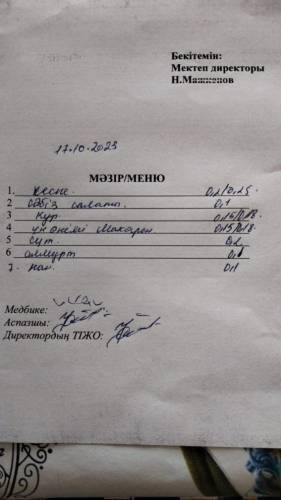 Бекітемін:
Мектеп директоры
Н.Мажженов
17.10.2023
МӘЗІР/МЕНЮ
1. кеспе. 0,2/0,25.
2 сәбіз салаты. 0,1
3 күр 0,15/0,18
4 ұн өнімі макарон 0,15/0,18.
5 сүт. 0,2
6 алмұрт 0,1
7. нан. 0,1
Медбике:
Аспазшы:
Директордың ТІЖО: